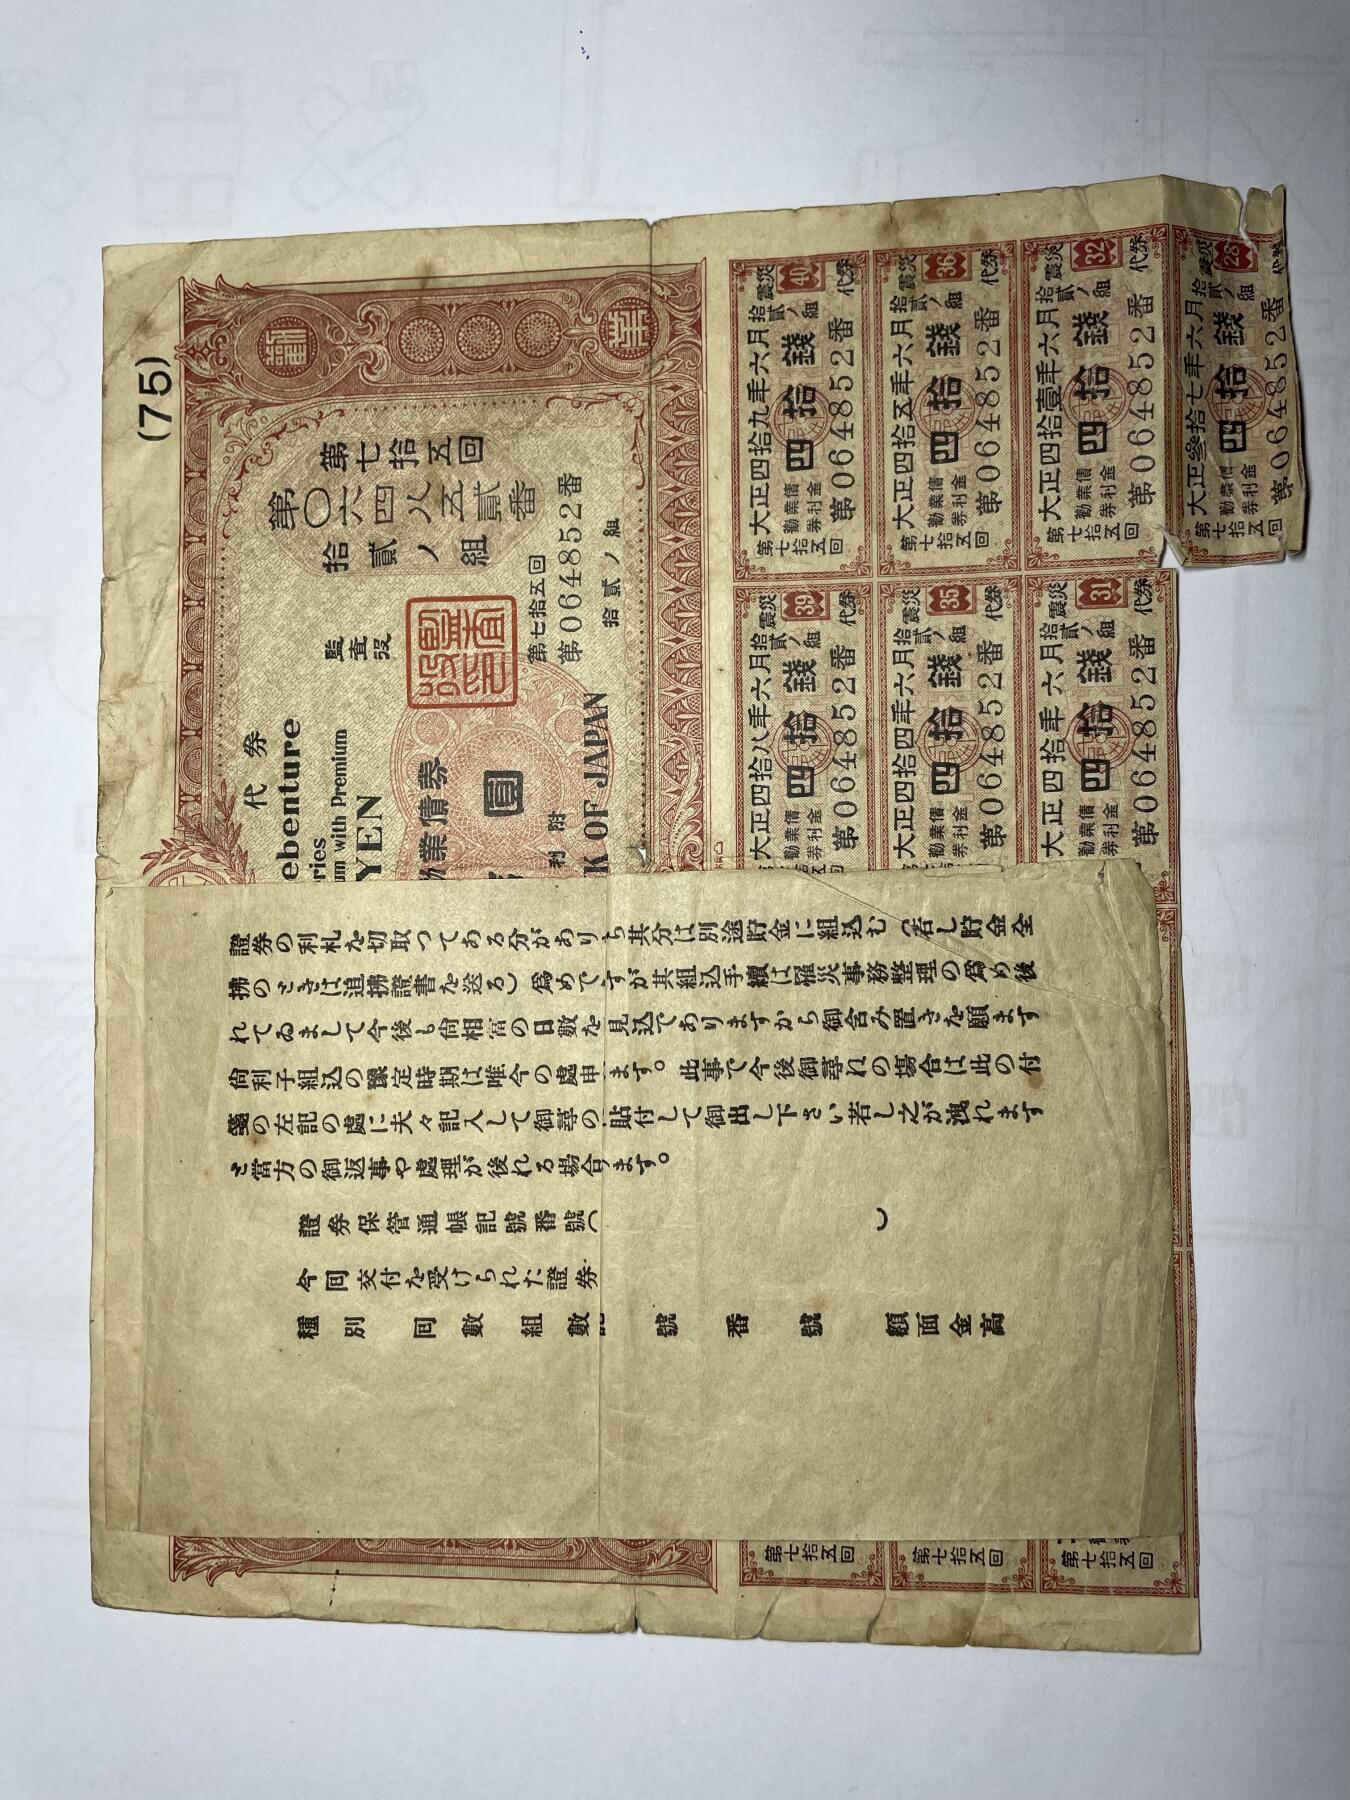 (75)
代券
ebenture
ries
um with Premium
YEN
業債券
圓
利附
K OF JAPAN
第七拾五回
第〇六四八五貳番
拾貳ノ組
監査役
第七拾五回
第064852番
拾貳ノ組
大正四拾九年六月
拾貳ノ組
震災
40
代券
第七拾五回
勸業債券利金
四拾錢
第064852番
大正四拾五年六月
拾貳ノ組
震災
36
代券
第七拾五回
勸業債券利金
四拾錢
第064852番
大正四拾壹年六月
拾貳ノ組
震災
32
代券
第七拾五回
勸業債券利金
四拾錢
第064852番
大正參拾七年六月
拾貳ノ組
震災
28
代券
第七拾五回
勸業債券利金
四拾錢
第064852番
大正四拾八年六月
拾貳ノ組
震災
39
代券
勸業債券利金
四拾錢
第064852番
大正四拾四年六月
拾貳ノ組
震災
35
代券
勸業債券利金
四拾錢
第064852番
大正四拾年六月
拾貳ノ組
震災
31
代券
勸業債券利金
四拾錢
第064852番
證券の利札を切取つてある分がありち其分は別途貯金に組込む(若し貯金全
拂のときは追拂證書を送る)爲めですが其組込手續は罹災事務整理の爲め後
れてゐまして今後も尙相當の日數を見込でありますから御含み置きを願ます
尙利子組込の豫定時期は唯今の處申ます。此事で今後御尋れの場合は此の付
箋の左記の處に夫々記入して御尋の貼付して御出し下さい若し之が洩れます
と當方の御返事や處理が後れる場合ます。
證券保管通帳記號番號( )
今回交付を受けられた證券
種別 回數 組數 號 番號 額面金高
第七拾五回
第七拾五回
第七拾五回